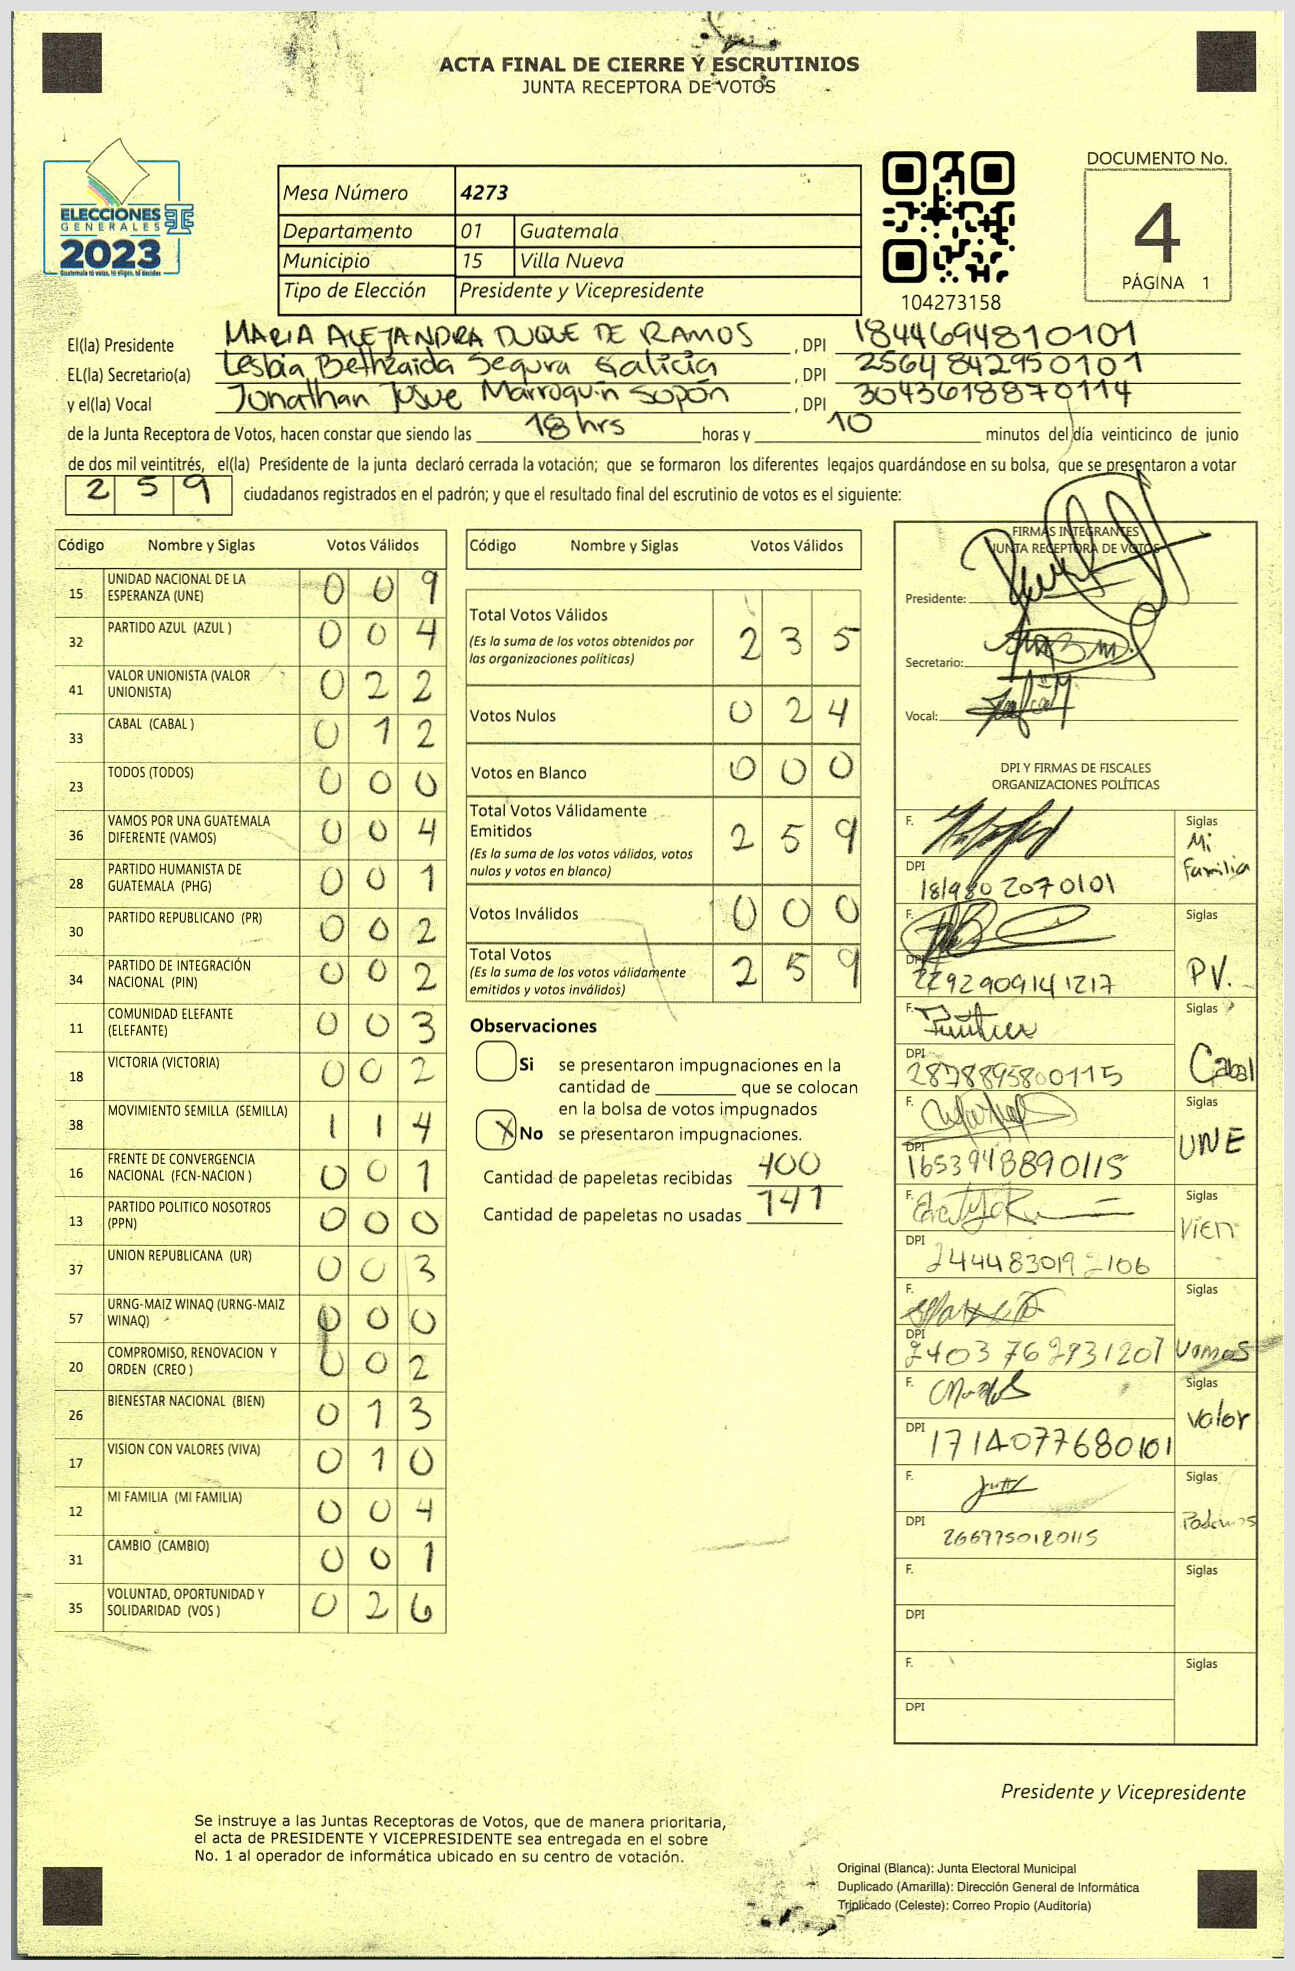 ACTA FINAL DE CIERRE Y ESCRUTINIOS
JUNTA RECEPTORA DE VOTOS
ELECCIONES
GENERALES
2023
Guatemala tú votas, tú eliges, tú decides
Mesa Número 4273
Departamento 01 Guatemala
Municipio 15 Villa Nueva
Tipo de Elección Presidente y Vicepresidente
104273158
DOCUMENTO No.
4
PÁGINA 1
El(la) Presidente MARIA ALEJANDRA DUQUE DE RAMOS, DPI 1844694810101
EL(la) Secretario(a) Lesbia Bethzaida Segura Galicia, DPI 2564842950101
y el(la) Vocal Jonathan Josue Marroquín Sopón, DPI 3043618870114
de la Junta Receptora de Votos, hacen constar que siendo las 18 hrs horas y 10 minutos del día veinticinco de junio
de dos mil veintitrés, el(la) Presidente de la junta declaró cerrada la votación; que se formaron los diferentes legajos guardándose en su bolsa, que se presentaron a votar
259 ciudadanos registrados en el padrón; y que el resultado final del escrutinio de votos es el siguiente:
Código Nombre y Siglas Votos Válidos
15 UNIDAD NACIONAL DE LA ESPERANZA (UNE) 009
32 PARTIDO AZUL (AZUL ) 004
41 VALOR UNIONISTA (VALOR UNIONISTA) 022
33 CABAL (CABAL ) 012
23 TODOS (TODOS) 000
36 VAMOS POR UNA GUATEMALA DIFERENTE (VAMOS) 004
28 PARTIDO HUMANISTA DE GUATEMALA (PHG) 001
30 PARTIDO REPUBLICANO (PR) 002
34 PARTIDO DE INTEGRACIÓN NACIONAL (PIN) 002
11 COMUNIDAD ELEFANTE (ELEFANTE) 003
18 VICTORIA (VICTORIA) 002
38 MOVIMIENTO SEMILLA (SEMILLA) 114
16 FRENTE DE CONVERGENCIA NACIONAL (FCN-NACION ) 001
13 PARTIDO POLITICO NOSOTROS (PPN) 000
37 UNION REPUBLICANA (UR) 003
57 URNG-MAIZ WINAQ (URNG-MAIZ WINAQ) 000
20 COMPROMISO, RENOVACION Y ORDEN (CREO ) 002
26 BIENESTAR NACIONAL (BIEN) 013
17 VISION CON VALORES (VIVA) 010
12 MI FAMILIA (MI FAMILIA) 004
31 CAMBIO (CAMBIO) 001
35 VOLUNTAD, OPORTUNIDAD Y SOLIDARIDAD (VOS ) 026
Código Nombre y Siglas Votos Válidos
Total Votos Válidos 235
(Es la suma de los votos obtenidos por las organizaciones políticas)
Votos Nulos 024
Votos en Blanco 000
Total Votos Válidamente Emitidos 259
(Es la suma de los votos válidos, votos nulos y votos en blanco)
Votos Inválidos 000
Total Votos 259
(Es la suma de los votos válidamente emitidos y votos inválidos)
Observaciones
Si se presentaron impugnaciones en la
cantidad de ________ que se colocan
en la bolsa de votos impugnados
X No se presentaron impugnaciones.
Cantidad de papeletas recibidas 400
Cantidad de papeletas no usadas 141
FIRMAS INTEGRANTES
JUNTA RECEPTORA DE VOTOS
Presidente:
Secretario:
Vocal:
DPI Y FIRMAS DE FISCALES
ORGANIZACIONES POLÍTICAS
F. Siglas Mi Familia
DPI
F. Siglas PV.
DPI 2292909141217
F. Siglas Cabal
DPI 2878895800115
F. Siglas UNE
DPI 1653948890115
F. Siglas
DPI
F. Siglas Vamos
DPI
F. Siglas Valor
DPI 1714077680101
F. Siglas Podemos
DPI
F. Siglas
DPI
F. Siglas
DPI
Presidente y Vicepresidente
Se instruye a las Juntas Receptoras de Votos, que de manera prioritaria,
el acta de PRESIDENTE Y VICEPRESIDENTE sea entregada en el sobre
No. 1 al operador de informática ubicado en su centro de votación.
Original (Blanca): Junta Electoral Municipal
Duplicado (Amarilla): Dirección General de Informática
Triplicado (Celeste): Correo Propio (Auditoría)